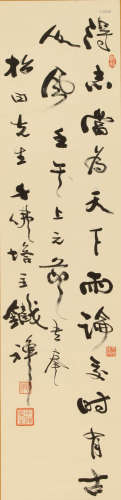 得志當為天下雨論交時有古
人風壬子上元節書奉
柏田先生 七佛塔主鐵禪